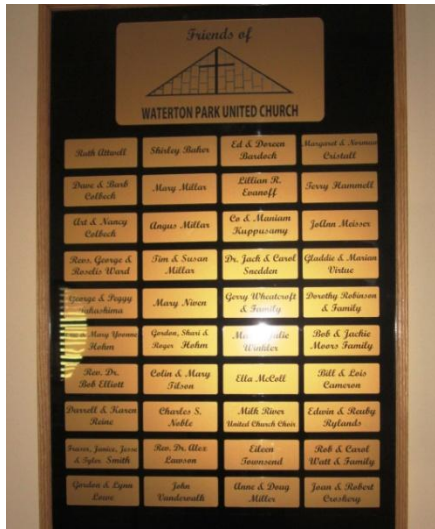 Friends of
WATERTON PARK UNITED CHURCH
Ruth Attwell
Shirley Baker
Ed & Doreen
Bardock
Margaret & Norman
Cristall
Dave & Barb
Colbeck
Mary Millar
Lillian R.
Evanoff
Terry Hammell
Art & Nancy
Colbeck
Angus Millar
Co & Maniam
Kuppusamy
JoAnn Meisser
Revs. George &
Roselis Ward
Tim & Susan
Millar
Dr. Jack & Carol
Snedden
Gladdie & Marion
Virtue
George & Peggy
Mary Niven
Gerry Wheatcroft
& Family
Dorothy Robinson
& Family
Mary Yvonne
Hohm
Gordon, Shari &
Roger Hohm
Winkler
Bob & Jackie
Moors Family
Rev. Dr.
Bob Elliott
Colin & Mary
Tilson
Ella McColl
Bill & Lois
Cameron
Darrell & Karen
Reine
Charles S.
Noble
Milk River
United Church Choir
Edwin & Reuby
Rylands
Janice, Jesse
& Tyler Smith
Rev. Dr. Alex
Lawson
Eileen
Townsend
Rob & Carol
Watt & Family
Gordon & Lynn
Lowe
John
Vanderwalk
Anne & Doug
Miller
Joan & Robert
Croskery